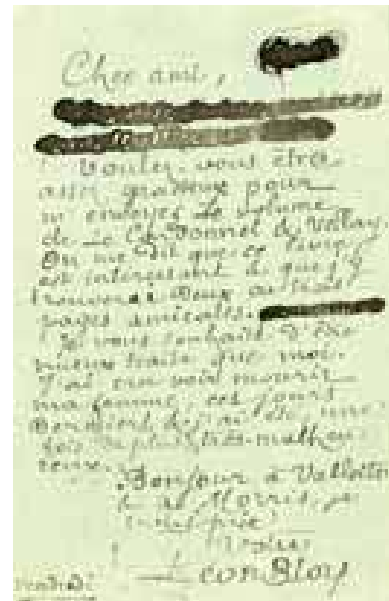 Cher ami,
Voulez-vous être
assez gracieux pour
m'envoyer le volume
de Le Cardonnel & Vellay.
On me dit que ce livre
est intéressant & que j'y
trouverai deux ou trois
pages amicales.
Je vous souhaite d'être
mieux traité que moi.
J'ai cru voir mourir
ma femme, ces jours
derniers & j'ai été, une
fois de plus, très-malheu-
reux.
Bonjour à Vallette
& à Morris, je
vous prie.
Votre
Léon Bloy
vendredi